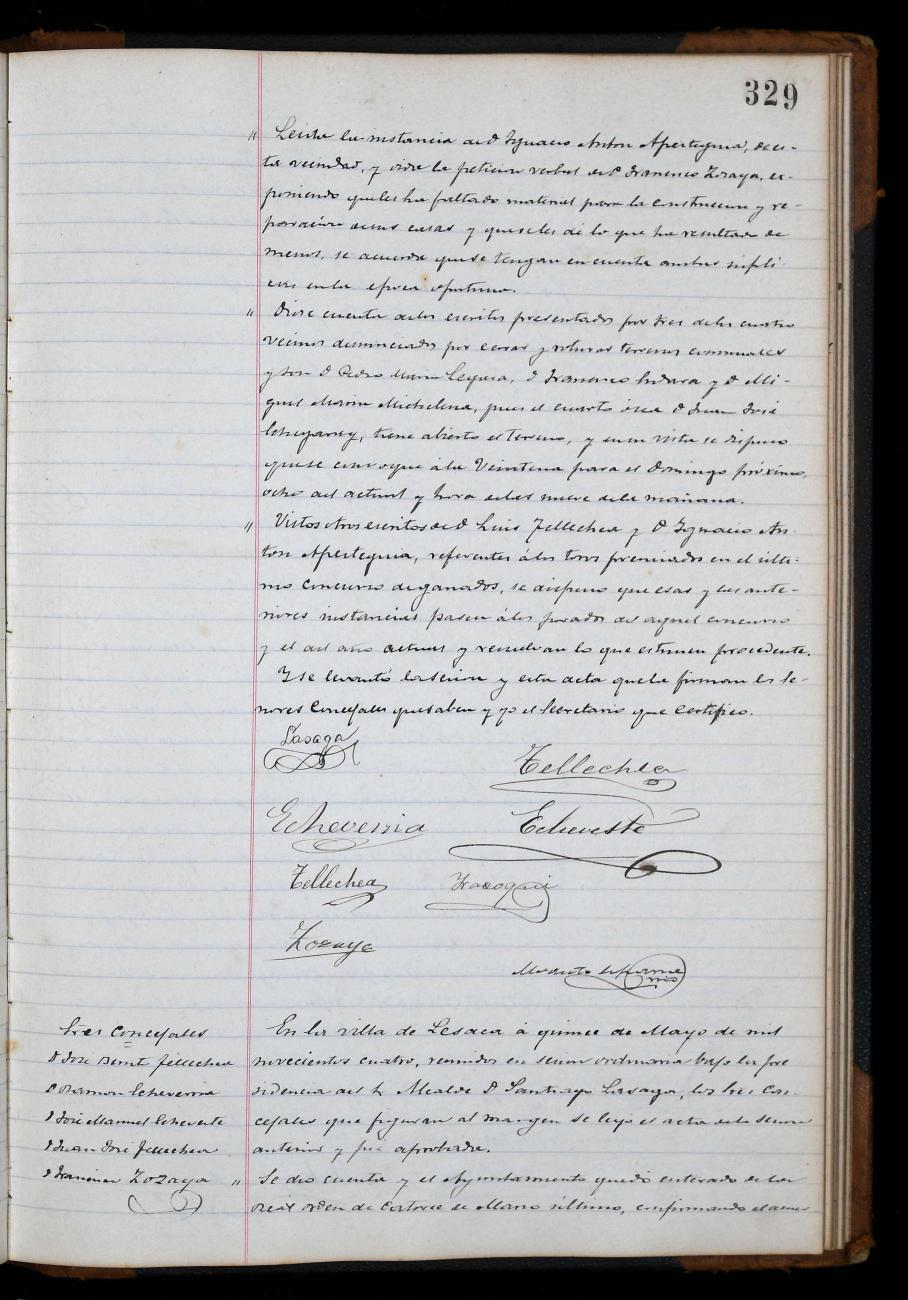 329
" Leida la instancia de D Ygnacio Anton Apesteguia, de es-
ta vecindad, y oida la peticion verbal de D Francisco Zozaya, ex-
poniendo que les ha faltado material para la construccion y re-
paracion de sus casas y que se les dé lo que ha resultado de
menos, se acuerda que se tengan en cuenta ambas supli-
cas en la epoca oportuna.
" Diose cuenta de los escritos presentados por tres de los cuatro
vecinos denunciados por cerrar y roturar terrenos comunales
y son D Pedro Maria Legasa, D Francisco Indara y D Mi-
guel Maria Michelena, pues el cuarto ó sea D Juan José
Echegaray, tiene abierto el terreno, y en su vista se dispuso
que se convoque á la Veintena para el Domingo próximo,
ocho del actual y hora de las nueve de la mañana.
" Vistos otros escritos de D Luis Tellechea y D Ygnacio An-
ton Apesteguia, referentes á los toros premiados en el ulti-
mo concurso de ganados, se dispuso que esas y las ante-
riores instancias pasen á los jurados de aquel concurso
y el del año actual y resuelvan lo que estimen procedente.
Y se levantó la sesion y esta acta que la firman los se-
ñores Concejales que saben y yo el Secretario que certifico.
Lasaga
Tellechea
Echeverria
Echeveste
Tellechea
Yrazoqui
Zozaya
Modesto
Sres Concejales
D José Benit Tellechea
D Ramon Echeverria
D José Manuel Echeveste
D Juan José Tellechea
D Francisco Zozaya
En la villa de Lesaca á quince de Mayo de mil
novecientos cuatro, reunidos en sesion ordinaria bajo la pre
sidencia del S. Alcalde D Santiago Lasaga, los Sres Con-
cejales que figuran al margen se leyó el acta de la sesion
anterior y fué aprobada.
" Se dio cuenta y el Ayuntamiento quedó enterado de la
Real orden de catorce de Marzo último, confirmando el acuer